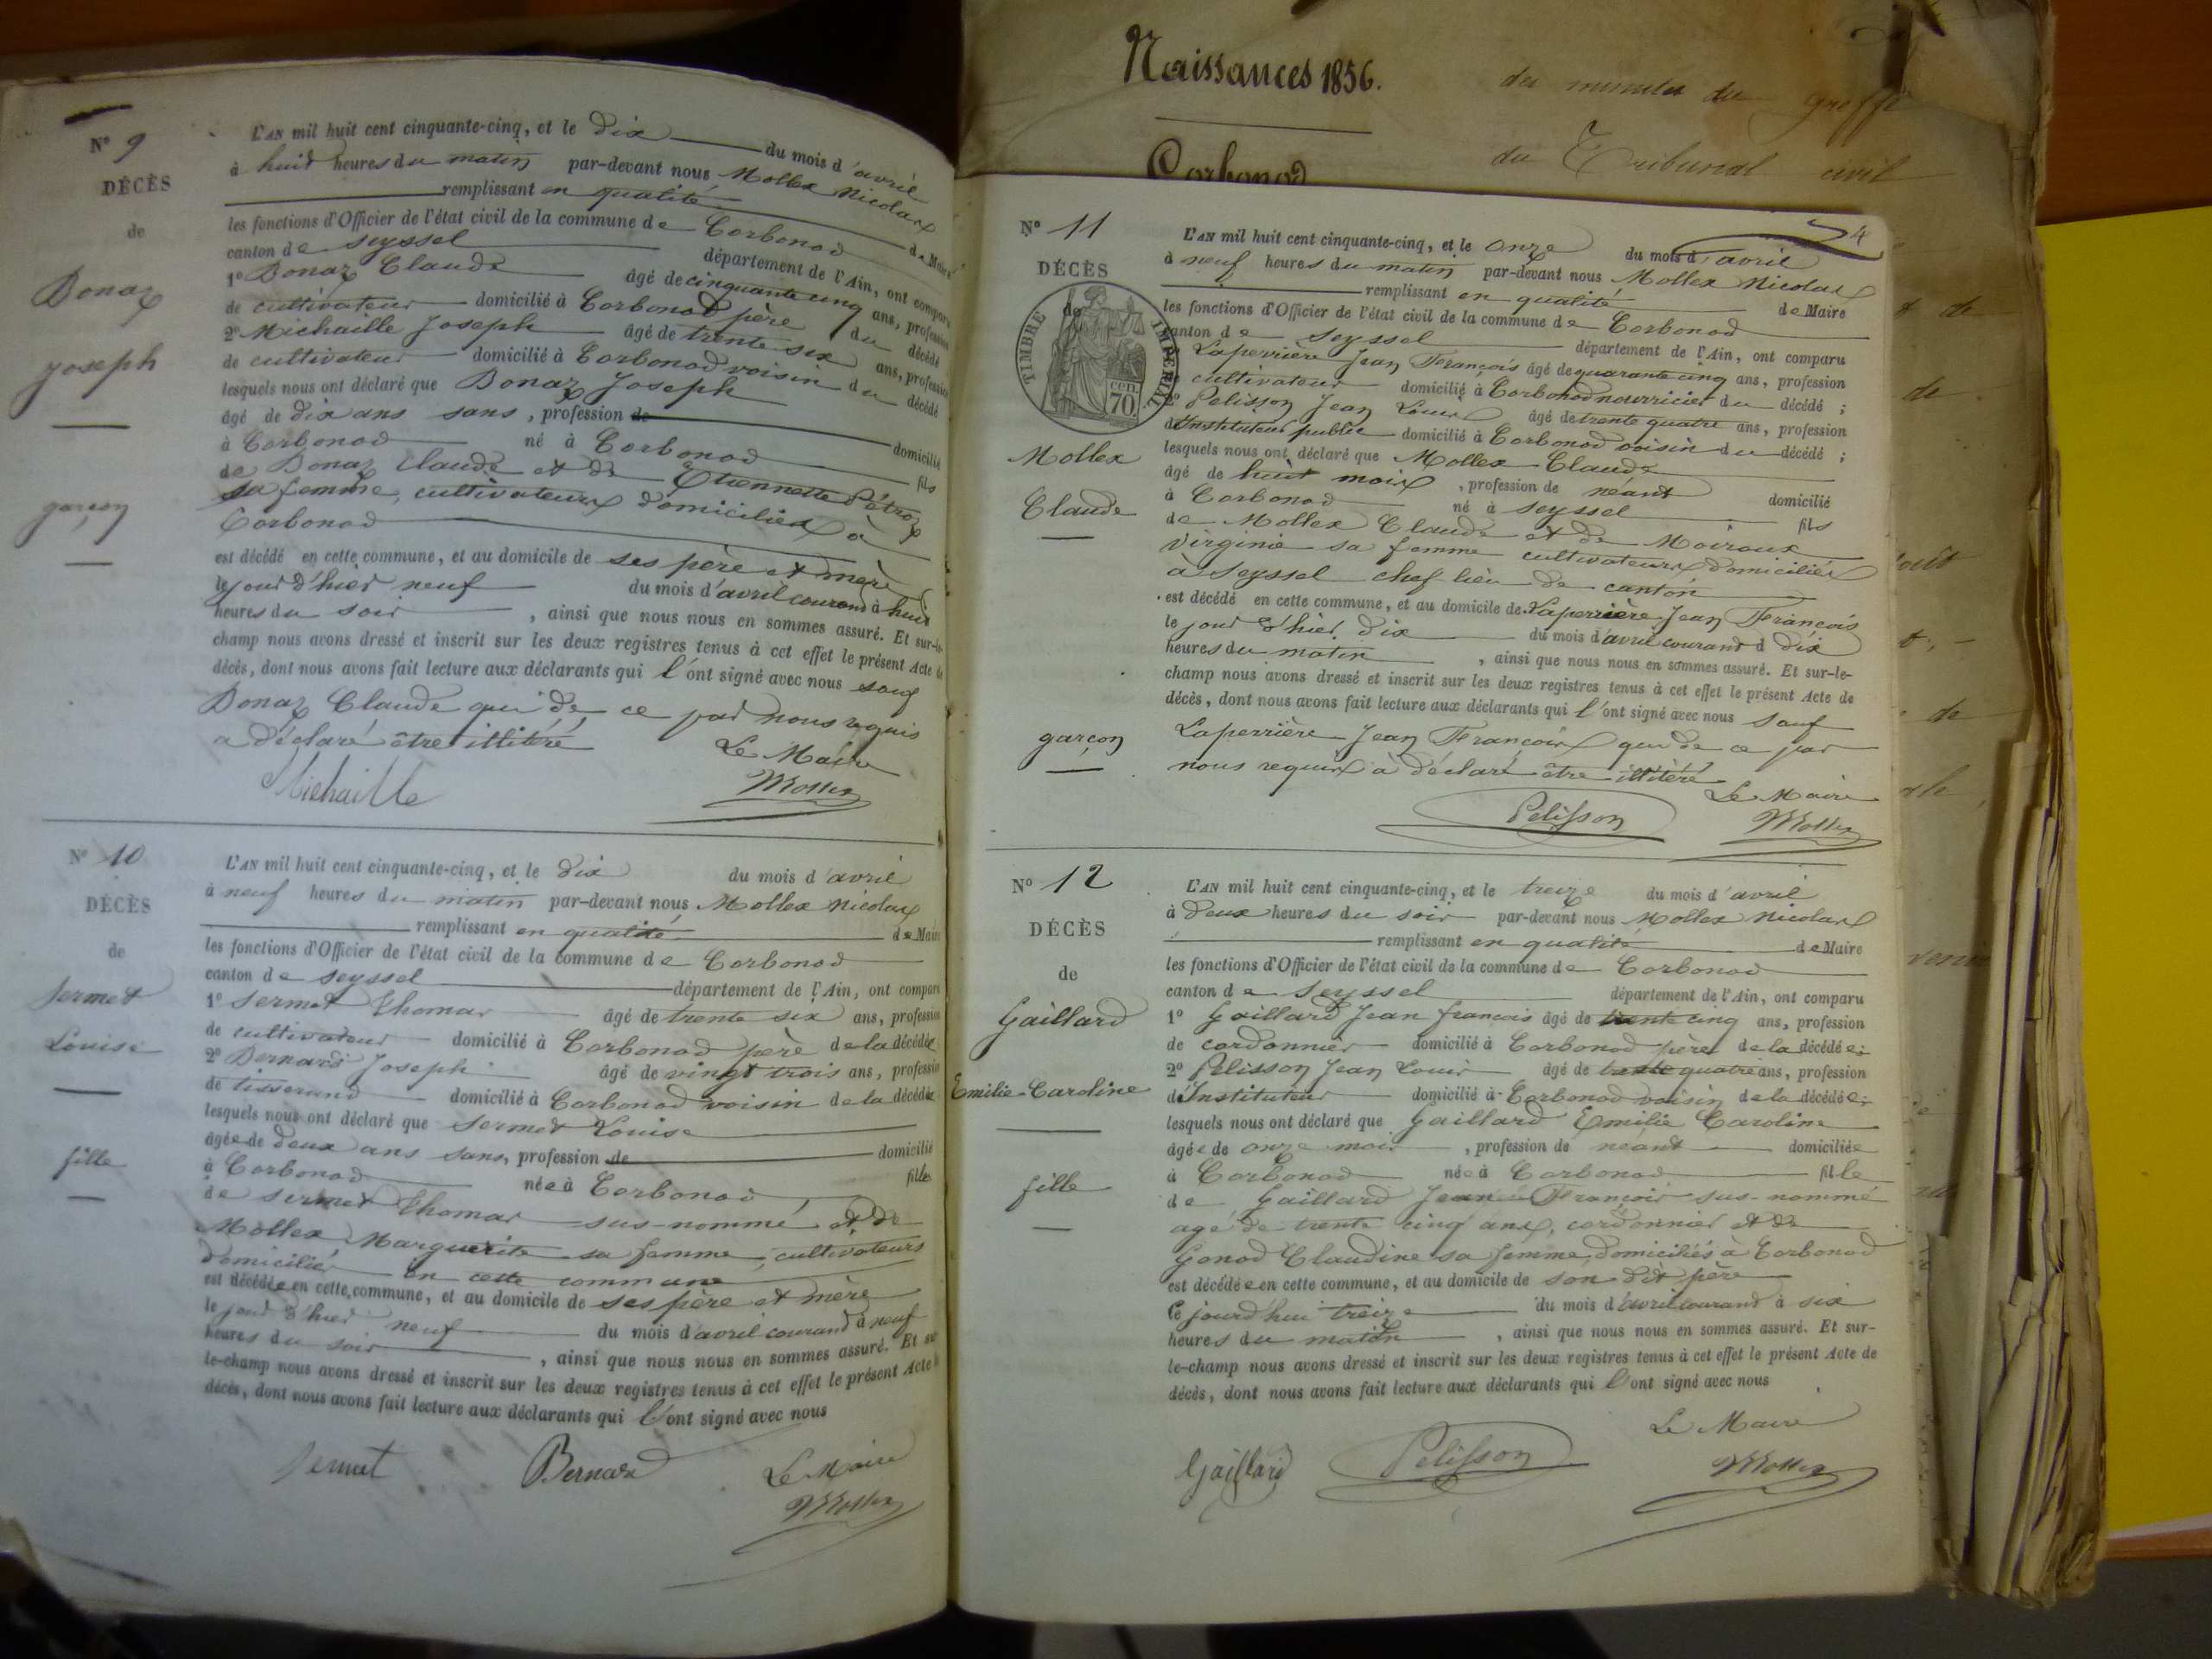 N° 9
DÉCÈS
de
Bonaz
Joseph
garçon
L'AN mil huit cent cinquante-cinq, et le dix du mois d'avril
à huit heures du matin par-devant nous Mollex Nicolas
remplissant en qualité de Maire
les fonctions d'Officier de l'état civil de la commune de Corbonod
canton de Seyssel département de l'Ain, ont comparu
1° Bonaz Claude âgé de cinquante cinq ans, profession
de cultivateur domicilié à Corbonod père du décédé
2° Michaille Joseph âgé de trente six ans, profession
de cultivateur domicilié à Corbonod voisin du décédé
lesquels nous ont déclaré que Bonaz Joseph
âgé de dix ans sans, profession de domicilié
à Corbonod né à Corbonod fils
de Bonaz Claude et de Etiennette Pétroz
sa femme, cultivateurs domiciliés à
Corbonod
est décédé en cette commune, et au domicile de ses père et mère
le jour d'hier neuf du mois d'avril courant à huit
heures du soir, ainsi que nous nous en sommes assuré. Et sur-le-
champ nous avons dressé et inscrit sur les deux registres tenus à cet effet le présent Acte de
décès, dont nous avons fait lecture aux déclarants qui l'ont signé avec nous sauf
Bonaz Claude qui de ce par nous requis
a déclaré être illitéré
Le Maire
Michaille
Mollex
N° 10
DÉCÈS
de
Sermet
Louise
fille
L'AN mil huit cent cinquante-cinq, et le dix du mois d'avril
à neuf heures du matin par-devant nous Mollex Nicolas
remplissant en qualité de Maire
les fonctions d'Officier de l'état civil de la commune de Corbonod
canton de Seyssel département de l'Ain, ont comparu
1° Sermet Thomas âgé de trente six ans, profession
de cultivateur domicilié à Corbonod père de la décédée
2° Bernard Joseph âgé de vingt trois ans, profession
de tisserand domicilié à Corbonod voisin de la décédée
lesquels nous ont déclaré que Sermet Louise
âgée de deux ans sans, profession de domicilié
à Corbonod née à Corbonod fille
de Sermet Thomas sus-nommé et de
Mollex Marguerite sa femme, cultivateurs
domiciliés en cette commune
est décédée en cette commune, et au domicile de ses père et mère
le jour d'hier neuf du mois d'avril courant à neuf
heures du soir, ainsi que nous nous en sommes assuré. Et sur-
le-champ nous avons dressé et inscrit sur les deux registres tenus à cet effet le présent Acte de
décès, dont nous avons fait lecture aux déclarants qui l'ont signé avec nous
Sermet Bernard Le Maire
Mollex
Naissances 1856.
Corbonod
des minutes du greffe
du Tribunal civil
4
N° 11
DÉCÈS
de
TIMBRE IMPÉRIAL
cen.
70.
Mollex
Claude
garçon
L'AN mil huit cent cinquante-cinq, et le onze du mois d'avril
à neuf heures du matin par-devant nous Mollex Nicolas
remplissant en qualité de Maire
les fonctions d'Officier de l'état civil de la commune de Corbonod
canton de Seyssel département de l'Ain, ont comparu
Laperrière Jean François âgé de quarante cinq ans, profession
de cultivateur domicilié à Corbonod nourricier du décédé ;
2° Pelisson Jean Louis âgé de trente quatre ans, profession
d'Instituteur public domicilié à Corbonod voisin du décédé ;
lesquels nous ont déclaré que Mollex Claude
âgé de huit mois, profession de néant domicilié
à Corbonod né à Seyssel fils
de Mollex Claude et de Moiroux
Virginie sa femme cultivateurs domiciliés
à Seyssel chef lieu de canton
est décédé en cette commune, et au domicile de Laperrière Jean François
le jour d'hier dix du mois d'avril courant à dix
heures du matin, ainsi que nous nous en sommes assuré. Et sur-le-
champ nous avons dressé et inscrit sur les deux registres tenus à cet effet le présent Acte de
décès, dont nous avons fait lecture aux déclarants qui l'ont signé avec nous sauf
Laperrière Jean François qui de ce par
nous requis a déclaré être illitéré
Le Maire
Pelisson Mollex
N° 12
DÉCÈS
de
Gaillard
Emilie-Caroline
fille
L'AN mil huit cent cinquante-cinq, et le treize du mois d'avril
à deux heures du soir par-devant nous Mollex Nicolas
remplissant en qualité de Maire
les fonctions d'Officier de l'état civil de la commune de Corbonod
canton de Seyssel département de l'Ain, ont comparu
1° Gaillard Jean françois âgé de trente cinq ans, profession
de cordonnier domicilié à Corbonod père de la décédée ;
2° Pelisson Jean Louis âgé de trente quatre ans, profession
d'Instituteur domicilié à Corbonod voisin de la décédée ;
lesquels nous ont déclaré que Gaillard Emilie Caroline
âgée de onze mois, profession de néant domiciliée
à Corbonod née à Corbonod fille
de Gaillard Jean François sus-nommé
agé de trente cinq ans, cordonnier et de
Gonod Claudine sa femme, domiciliés à Corbonod
est décédée en cette commune, et au domicile de son dit père
Ce jourd'hui treize du mois d'avril courant à six
heures du matin, ainsi que nous nous en sommes assuré. Et sur-
le-champ nous avons dressé et inscrit sur les deux registres tenus à cet effet le présent Acte de
décès, dont nous avons fait lecture aux déclarants qui l'ont signé avec nous
Le Maire
Gaillard Pelisson Mollex